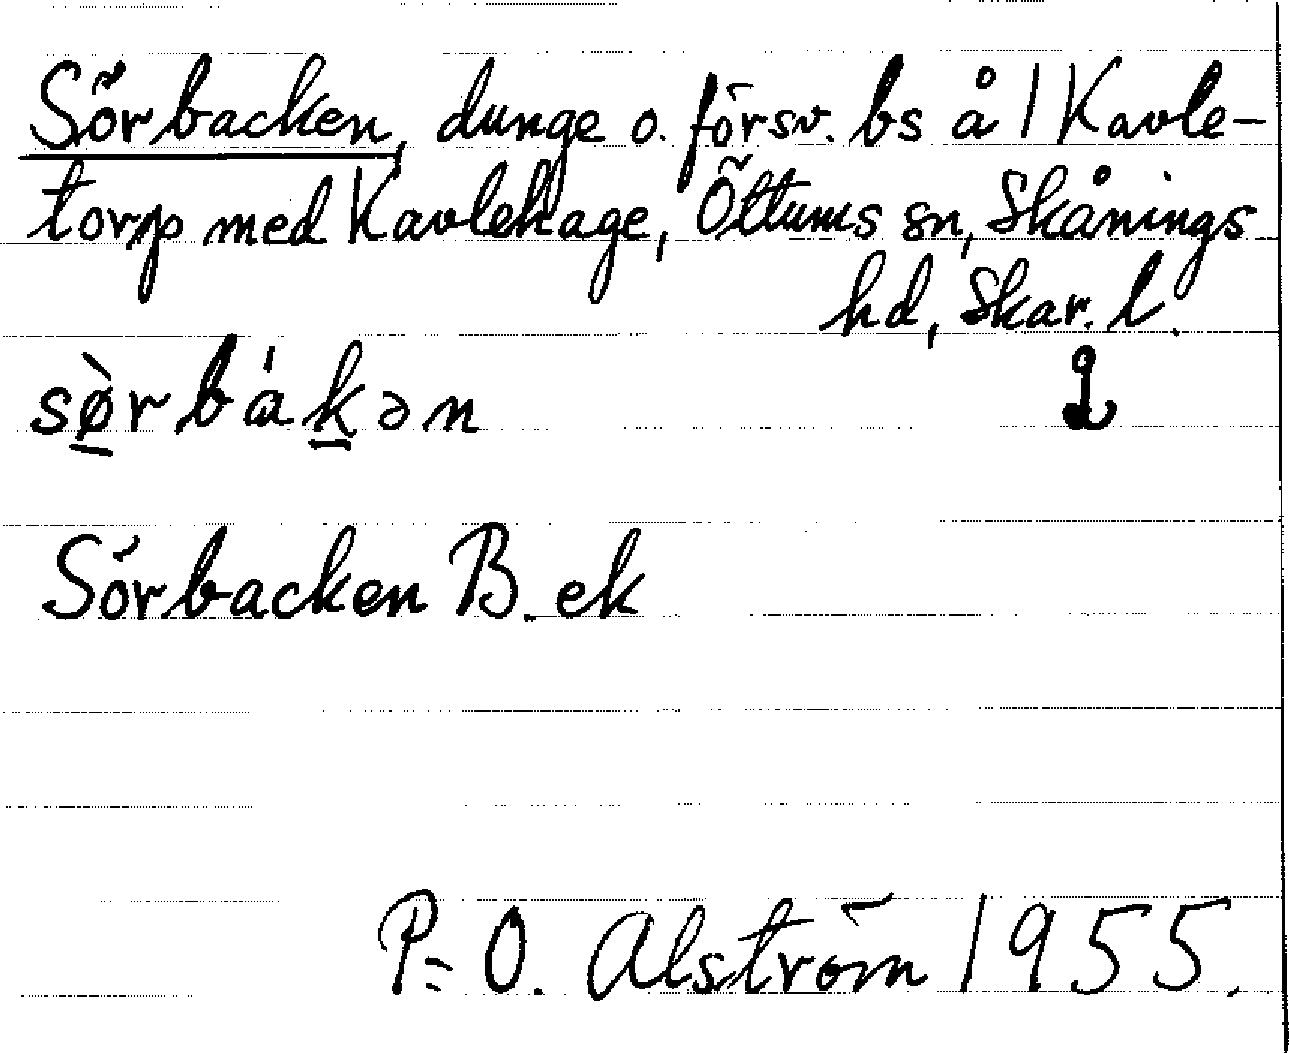 Sörbacken, dunge o. försv. bs å 1 Kavle-
torp med Kavlehage, Öttums sn, Skånings
hd, Skar. l.
sø̀rbákən
Sörbacken B. ek
P=O. Alström 1955.